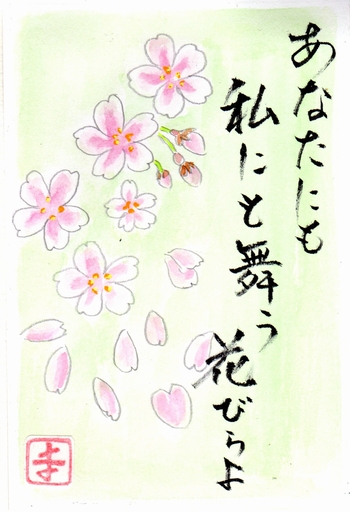 あなたにも
私にも舞う
花びらよ